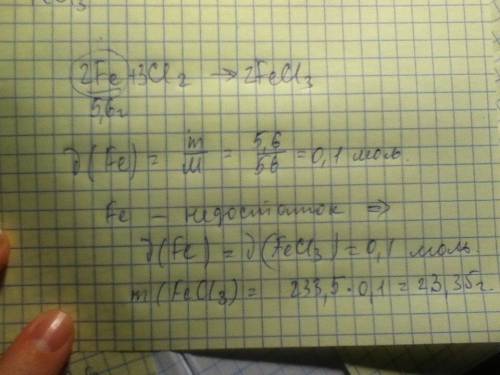 2Fe + 3Cl2 → 2FeCl3
5,6г
ν(Fe) = m/M = 5,6/56 = 0,1 моль.
Fe – недостаток ⇒
ν(Fe) = ν(FeCl3) = 0,1 моль.
m(FeCl3) = 233,5·0,1 = 23,35г.